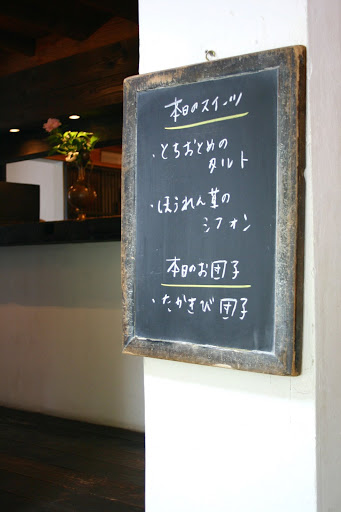 本日のスイーツ
・とちおとめの
タルト
・ほうれん草の
シフォン
本日のお団子
・たかきび団子